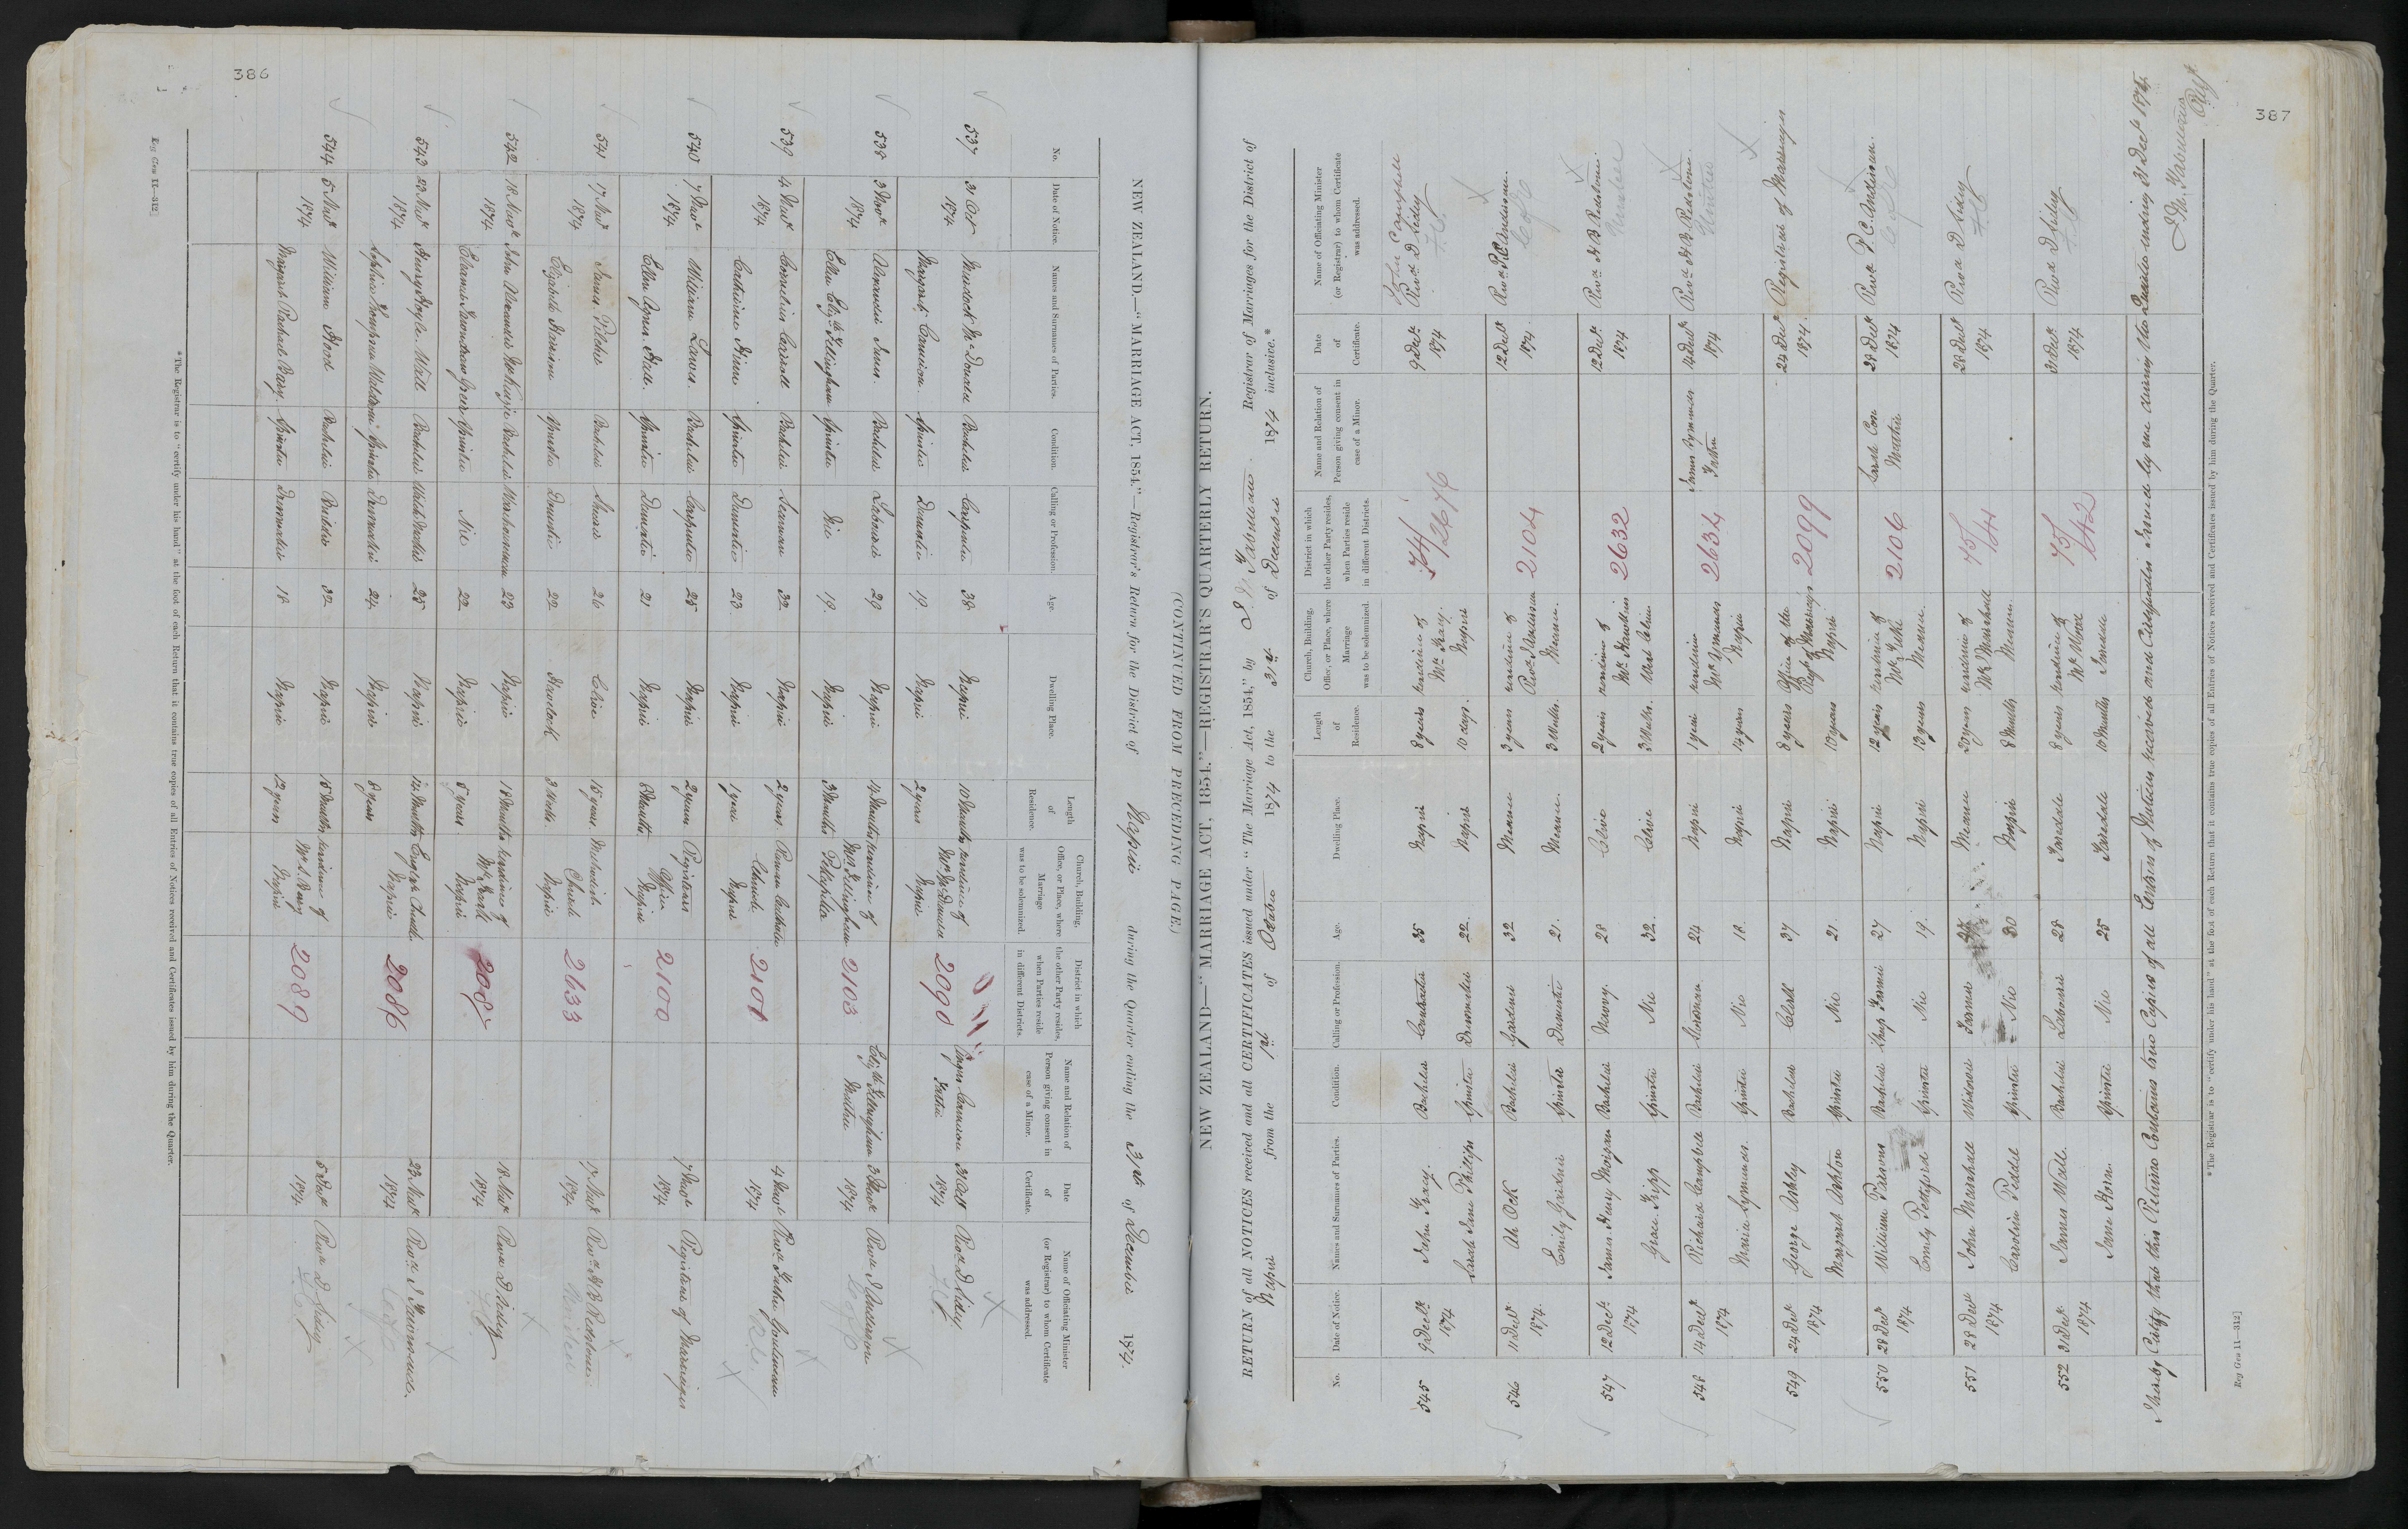 386
NEW ZEALAND.—"MARRIAGE ACT, 1854."—Registrar's Return for the District of Napier during the Quarter ending the 31st of December 1874.
(CONTINUED FROM PRECEDING PAGE.)
No.
Date of Notice.
Names and Surnames of Parties.
Condition.
Calling or Profession.
Age.
Dwelling Place.
Length of Residence.
Church, Building, Office, or Place, where Marriage was to be solemnized.
District in which the other Party resides, when Parties reside in different Districts.
Name and Relation of Person giving consent in case of a Minor.
Date of Certificate.
Name of Officiating Minister (or Registrar) to whom Certificate was addressed.
537 31 Oct Murdock McDonald Bachelor Carpenter 38 Napier 10 Months residence of 2090 Angus Cameron 31 Oct Revd D Sidey
1874 Margaret Cameron Spinster Domestic 19 Napier 2 years Napier Father 1874
538 3 Novr Alexander Bachelor Labourer 29 Napier 14 Months residence of 2103 3 Novr Revd
1874 Spinster Nic 19 Napier 3 Months Mother 1874
539 4 Novr Cornelius Carroll Bachelor Seaman 32 Napier 2 years Roman Catholic 2101 4 Novr Revd Father
1874 Catherine Spinster Domestic 23 Napier 1 year Church Napier 1874
540 7 Novr William Bachelor Carpenter 25 Napier 2 years Registrars 2100 7 Novr Registrar of Marriages
1874 Ellen Agnes Spinster Domestic 21 Napier 8 Months Office Napier 1874
541 17 Novr James Bachelor 26 Clive 15 years Methodist 2633 17 Novr Revd H B Redstone
1874 Elizabeth Harrison Spinster Domestic 22 Havelock 3 Church Napier 1874
542 18 Novr John Alexander McKenzie Bachelor Warehouseman 23 Napier 18 Months residence of 18 Novr Revd D Sidey
1874 Eleanor Greer Spinster Nic 22 Napier 5 years Napier 1874
543 23 Novr Henry Hoyle Wall Bachelor 25 Napier 14 Months English Church 2086 23 Novr Revd J Townsend
1874 Sophia Spinster Dressmaker 24 Napier 8 years Napier 1874
544 5 William Hood Bachelor Builder 32 Napier 15 Months residence of 2089 5 Revd D Sidey
1874 Margaret Rachael Bary Spinster Dressmaker 18 Napier 12 years Napier 1874
*The Registrar is to "certify under his hand" at the foot of each Return that it contains true copies of all Entries of Notices received and Certificates issued by him during the Quarter.
Reg Gen 11—312]
387
NEW ZEALAND—"MARRIAGE ACT, 1854."—REGISTRAR'S QUARTERLY RETURN.
RETURN of all NOTICES received and all CERTIFICATES issued under "The Marriage Act, 1854," by Registrar of Marriages for the District of
Napier from the 1st of October 1874 to the 31st of December 1874 inclusive.*
No.
Date of Notice.
Names and Surnames of Parties.
Condition.
Calling or Profession.
Age.
Dwelling Place.
Length of Residence.
Church, Building, Office, or Place, where Marriage was to be solemnized.
District in which the other Party resides, when Parties reside in different Districts.
Name and Relation of Person giving consent in case of a Minor.
Date of Certificate.
Name of Officiating Minister (or Registrar) to whom Certificate was addressed.
545 9 Decr John Bachelor Contractor 35 Napier 8 years residence of 74/2676 9 Decr John Campbell
1874 Sarah Jane Phillips Spinster Dressmaker 22 Napier 10 days Napier 1874 Revd D Sidey
546 11 Decr Ah Ock Bachelor Gardener 32 Meanee 3 years residence of 2104 12 Decr Revd P C Anderson
1874 Emily Spinster Domestic 21 Meanee 3 Mths. Meanee 1874
547 12 Decr James Henry Bachelor Navvy 28 Clive 2 years residence of 2632 12 Decr Revd H B Redstone
1874 Grace Spinster Nic 32 Clive 3 Mths. West Clive 1874
548 14 Decr Richard Campbell Bachelor Storeman 24 Napier 1 year residence 2634 James Lymmer 14 Decr Revd H B Redstone
1874 Spinster Nic 18 Napier 14 years Napier Father 1874
549 24 Decr George Ashley Bachelor Clerk 37 Napier 8 years Office of the 2099 24 Decr Registrar of Marriages
1874 Margaret Ashton Spinster Nic 21 Napier 10 years Napier 1874
550 28 Decr William Parsons Bachelor Sheep Farmer 27 Napier 12 years residence of 2106 Sarah 28 Decr Revd P. C. Anderson
1874 Emily Spinster Nic 19 Napier 13 years Meanee Mother 1874
551 28 Decr John Marshall Widower Farmer Meanee 20 years residence of 75/44 28 Decr Revd D Sidey
1874 Caroline Spinster Nic 30 Napier 8 Months Mr Marshall Meanee 1874
552 31 Decr James Wall Bachelor Labourer 28 8 years residence of 75/42 31 Decr Revd D Sidey
1874 Jane Horn Spinster Nic 25 10 Months 1874
I hereby Certify that this Return Contains true Copies of all Entries of Notices received and Certificates Issued by me during the Quarter ending 31 Decr 1874.
*The Registrar is to "certify under his hand" at the foot of each Return that it contains true copies of all Entries of Notices received and Certificates issued by him during the Quarter.
Reg Gen 11—312]